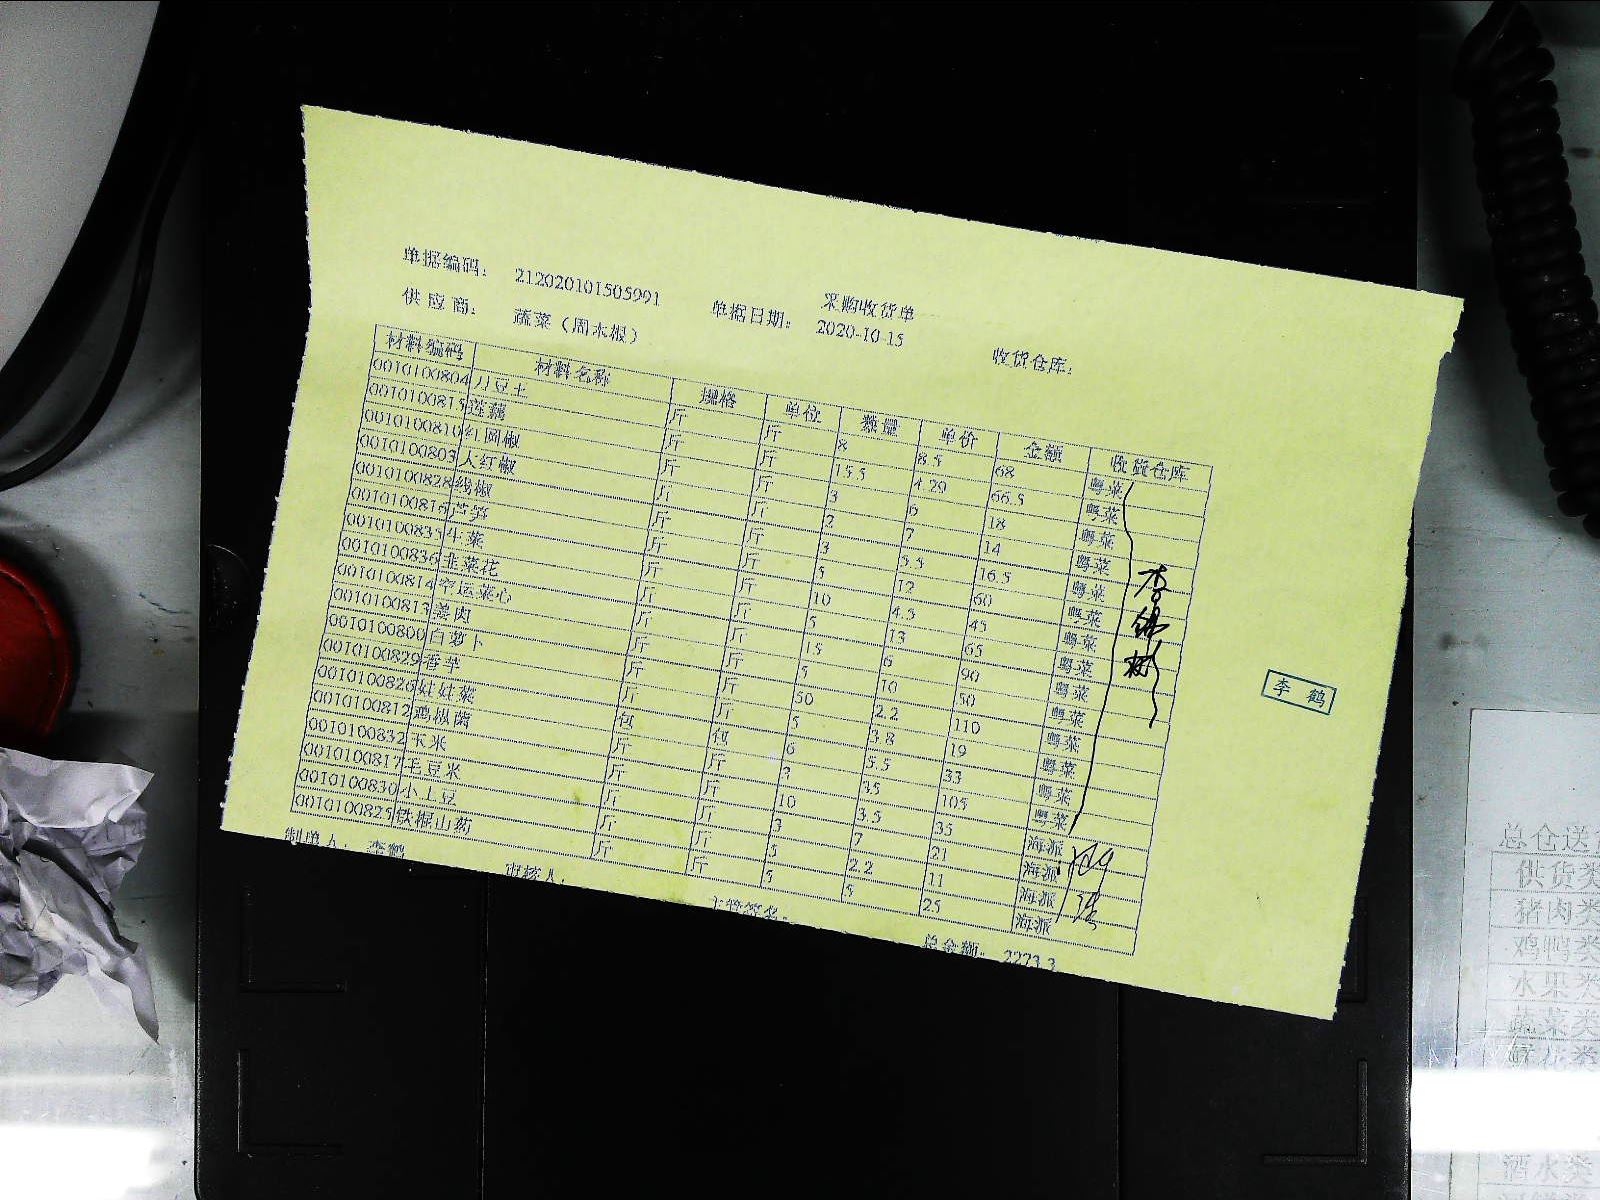 采购收货单
单据编码： 212020101505991 单据日期： 2020-10-15 收货仓库：
供应商： 蔬菜（周木根）
材料编码 材料名称 规格 单位 数量 单价 金额 收货仓库
0010100804 刀豆土 斤 斤 8 8.5 68 粤菜
0010100815 莲藕 斤 斤 15.5 4.29 66.5 粤菜
0010100810 红圆椒 斤 斤 3 6 18 粤菜
0010100803 大红椒 斤 斤 2 7 14 粤菜
0010100828 线椒 斤 斤 3 5.5 16.5 粤菜
0010100816 芦笋 斤 斤 5 12 60 粤菜
0010100835 生菜 斤 斤 10 4.5 45 粤菜
0010100836 韭菜花 斤 斤 5 13 65 粤菜
0010100814 空运菜心 斤 斤 15 6 90 粤菜
0010100813 姜肉 斤 斤 5 10 50 粤菜
0010100800 白萝卜 斤 斤 50 2.2 110 粤菜
0010100829 香芋 斤 斤 5 3.8 19 粤菜
0010100826 娃娃菜 包 包 6 5.5 33 粤菜
0010100812 鸡枞菌 斤 斤 3 35 105 粤菜
0010100832 玉米 斤 斤 10 3.5 35 海派
0010100817 毛豆米 斤 斤 3 7 21 海派
0010100830 小土豆 斤 斤 5 2.2 11 海派
0010100825 铁棍山药 斤 斤 5 5 25 海派
制单人： 李鹤 审核人： 主管签名： 总金额： 2273.3
李鹤
总仓送
供货类
猪肉类
鸡鸭类
水果类
蔬菜类
鲜花类
酒水类